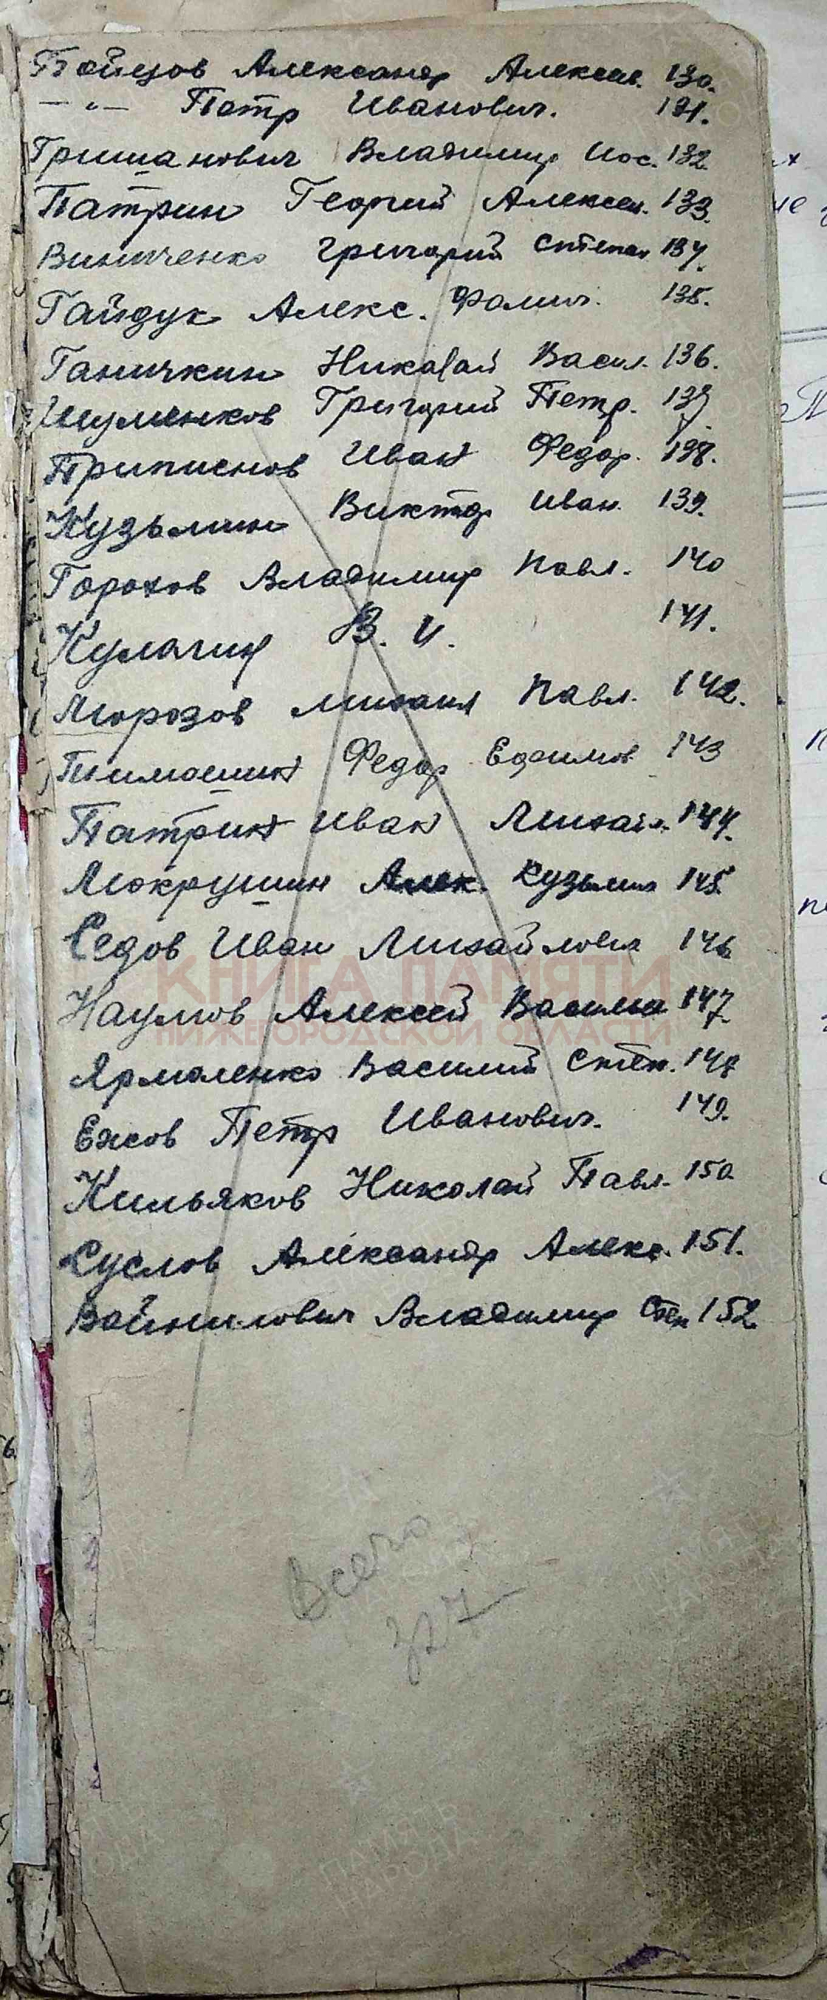 Бойцов Александр Алексеев. 130.
—"— Петр Иванович. 131.
Гришанович Владимир Иос. 132.
Патрин Георгий Алексеев. 133.
Винниченко Григорий Степан 134.
Гайдук Алекс. Фомич. 135.
Ганичкин Николай Васил. 136.
Шуменков Григорий Петр. 137.
Приписнов Иван Федор. 138.
Кузьмин Виктор Иван. 139.
Горохов Владимир Павл. 140
Кулагин В. И. 141.
Морозов Михаил Павл. 142.
Тимошин Федор Ефимов 143
Патрин Иван Михайл. 144.
Мокрушин Алек. Кузьмич 145.
Седов Иван Михайлович 146
КНИГА ПАМЯТИ
Наумов Алексей Василье 147.
НИЖЕГОРОДСКОЙ ОБЛАСТИ
Ярмоленко Василий Степ. 148
Ежов Петр Иванович. 149.
Кильяков Николай Павл. 150
Суслов Александр Алекс. 151.
Войнилович Владимир Степ 152
Всего
327
ПАМЯТЬ
НАРОДА